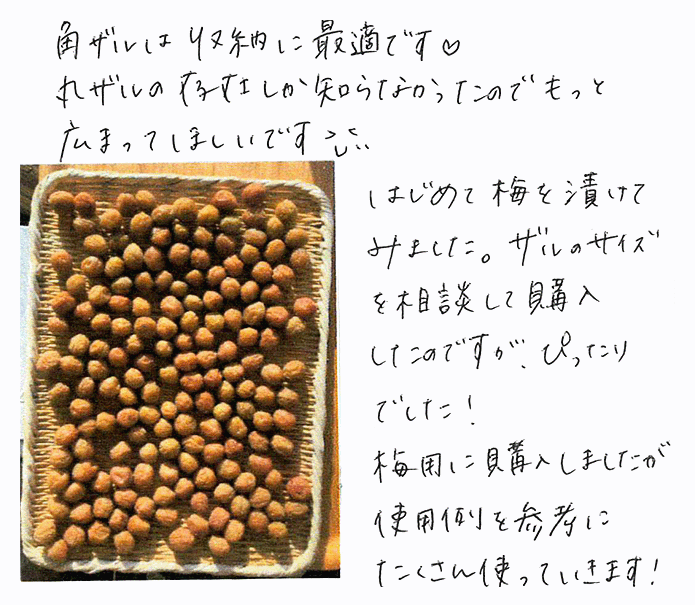 角ザルは収納に最適です♡
丸ザルの存在しか知らなかったのでもっと
広まってほしいです
はじめて梅を漬けて
みました。ザルのサイズ
を相談して購入
したのですが、ぴったり
でした！
梅用に購入しましたが
使用例を参考に
たくさん使っていきます！